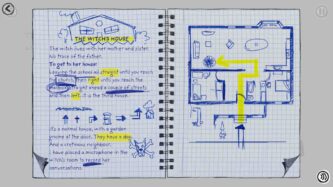 THE WITCH'S HOUSE
The witch lives with her mother and sister.
No trace of the father.
To get to her house:
Leaving the school go straight until you reach
the church, then right until you reach the
straight ahead a couple of streets
and then left, it is the third house.
It's a normal house, with a garden
They have a dog.
And a nosy neighbour.
I have placed a microphone in the
witch's room to record her
conversations.